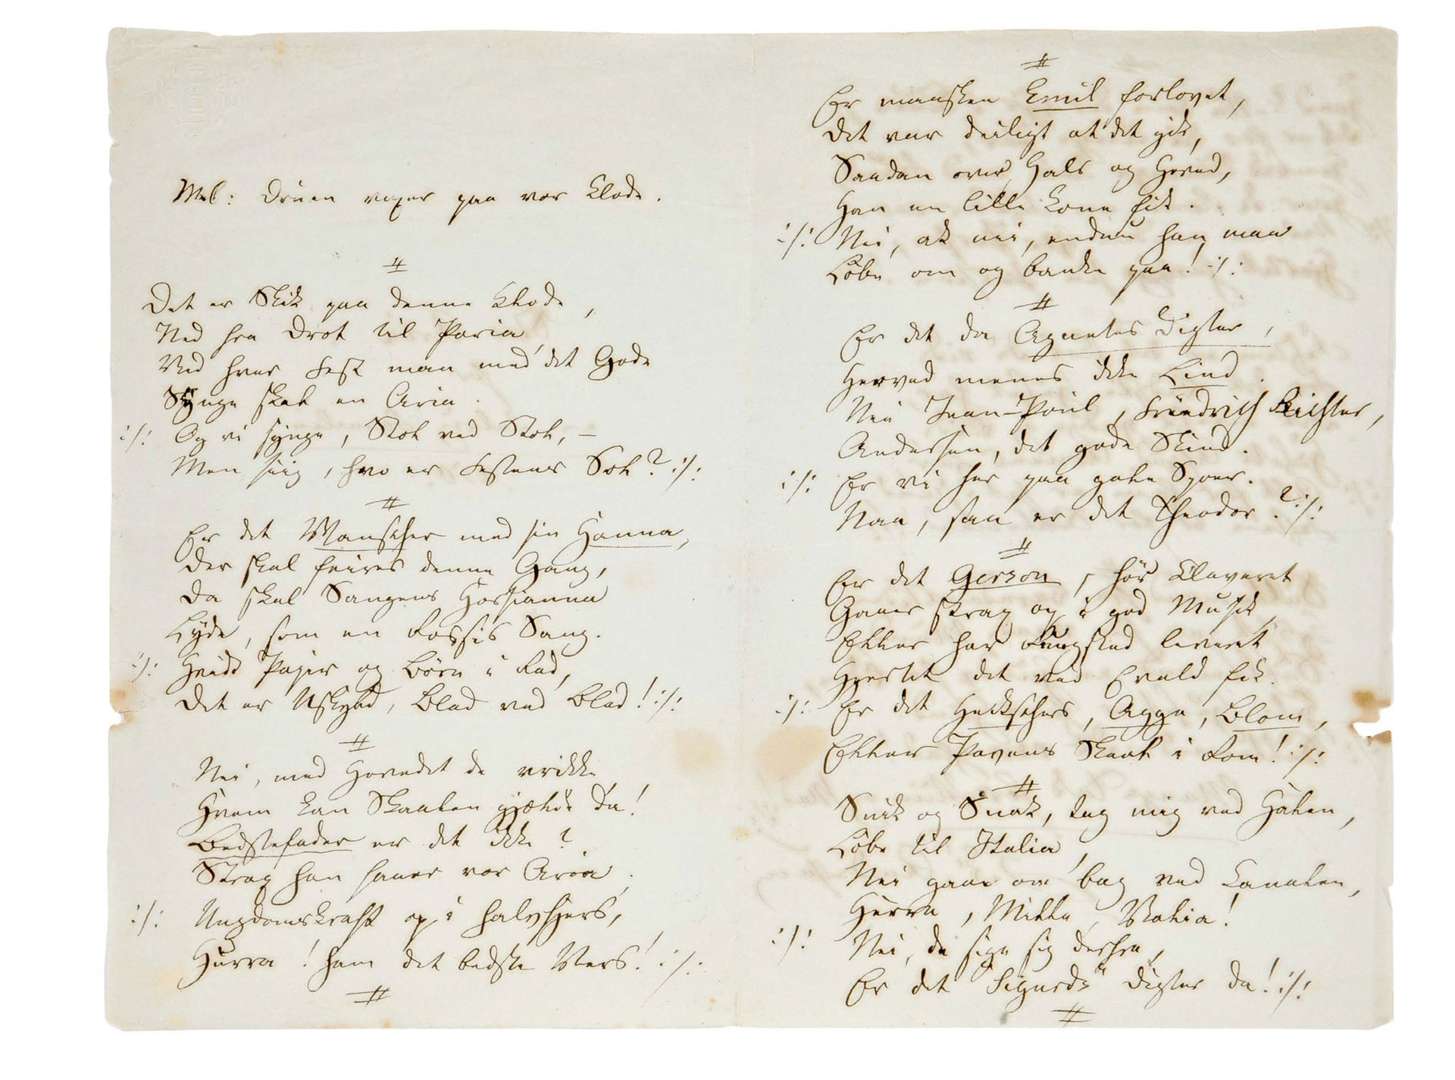 Mel: Druen voxer paa vor Klode.
#
Det er Skik paa denne Klode,
Ned fra Drot til Paria,
Ved hver Fest man med det Gode
Synge skal en Aria.
:/: Og vi synge, Stok ved Stok, –
Men siig, hvo er Festens Sok? :/:
#
Er det Manscher med sin Hanna,
Der skal feires denne Gang,
Da skal Sangens Hossianna
Lyde, som en Rossis Sang.
:/: Hvidt Papir og Børn i Rad,
Det er Uskyld, Blad ved Blad! :/:
#
Nei, med Hovedet de vrikke,
Hvem kan Skaalen gjælde da!
Bedstefader er det ikke?
Strax han faaer vor Aria.
:/: Ungdomskraft op i halvfjers,
Hurra! ham det bedste Vers! :/:
#
#
Er maaskee Emil forlovet,
Det var deiligt at det gik,
Saadan over Hals og Hoved,
Han en lille Kone fik.
:/: Nei, ak nei, endnu han maa
Løbe om og banke paa! :/:
#
Er det da Agnetes Digter,
Herved menes ikke Lind.
Nei Jean-Poul, Friedrich Richter,
Andersen, det gode Skind.
:/: Er vi her paa gale Spoer.
Naa, saa er det Theodor? :/:
#
Er det Gerson, hør Claveret
Gaaer strax op i god Musik,
Efter har Ringsted leveret
Hjertet det ved Evald fik.
:/: Er det Heckschers, Agga, Blom,
Efter Pavens Skaal i Rom! :/:
#
Snik og Snak, tag mig ved Halen,
Løbe til Italia,
Nei gaae om bag ved Canalen,
Herre, Mille, Maria!
:/: Nei, da sige sig derfra,
Er det "Sigurds" Digter da! :/:
#